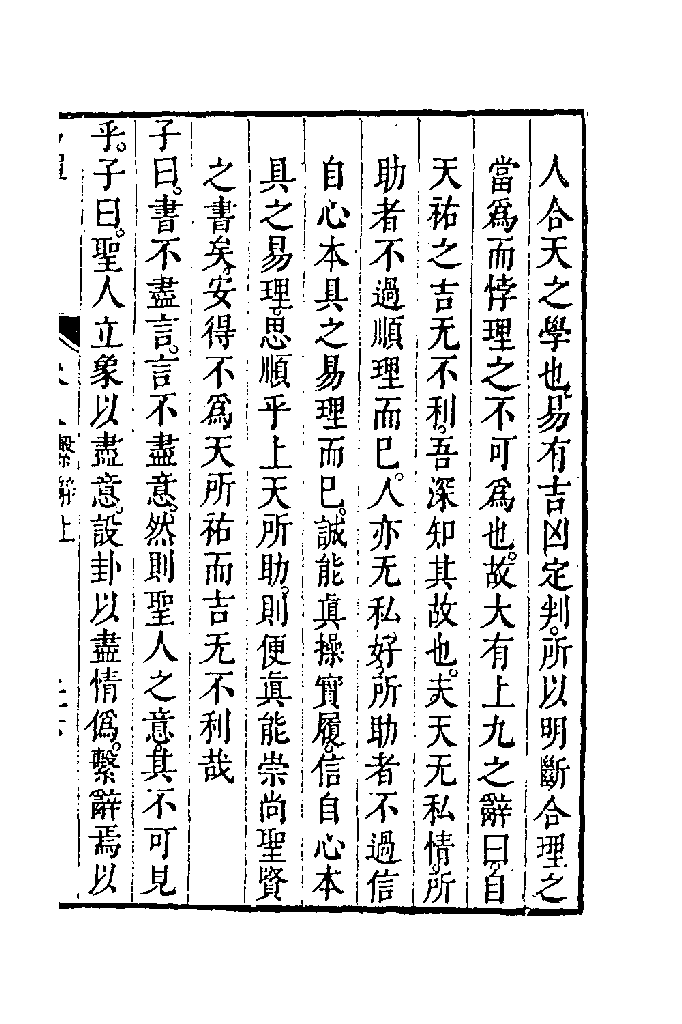 人合天之學也。易有吉凶定判。所以明斷合理之
當爲而悖理之不可爲也。故大有上九之辭曰。自
天祐之吉无不利。吾深知其故也。夫天无私情。所
助者不過順理而已。人亦无私好。所助者不過信
自心本具之易理而已。誠能眞操實履。信自心本
具之易理。思順乎上天所助。則便眞能崇尚聖賢
之書矣。安得不爲天所祐而吉无不利哉
子曰。書不盡言。言不盡意。然則聖人之意。其不可見
乎。子曰。聖人立象以盡意。設卦以盡情僞。繫辭焉以
繫辭上